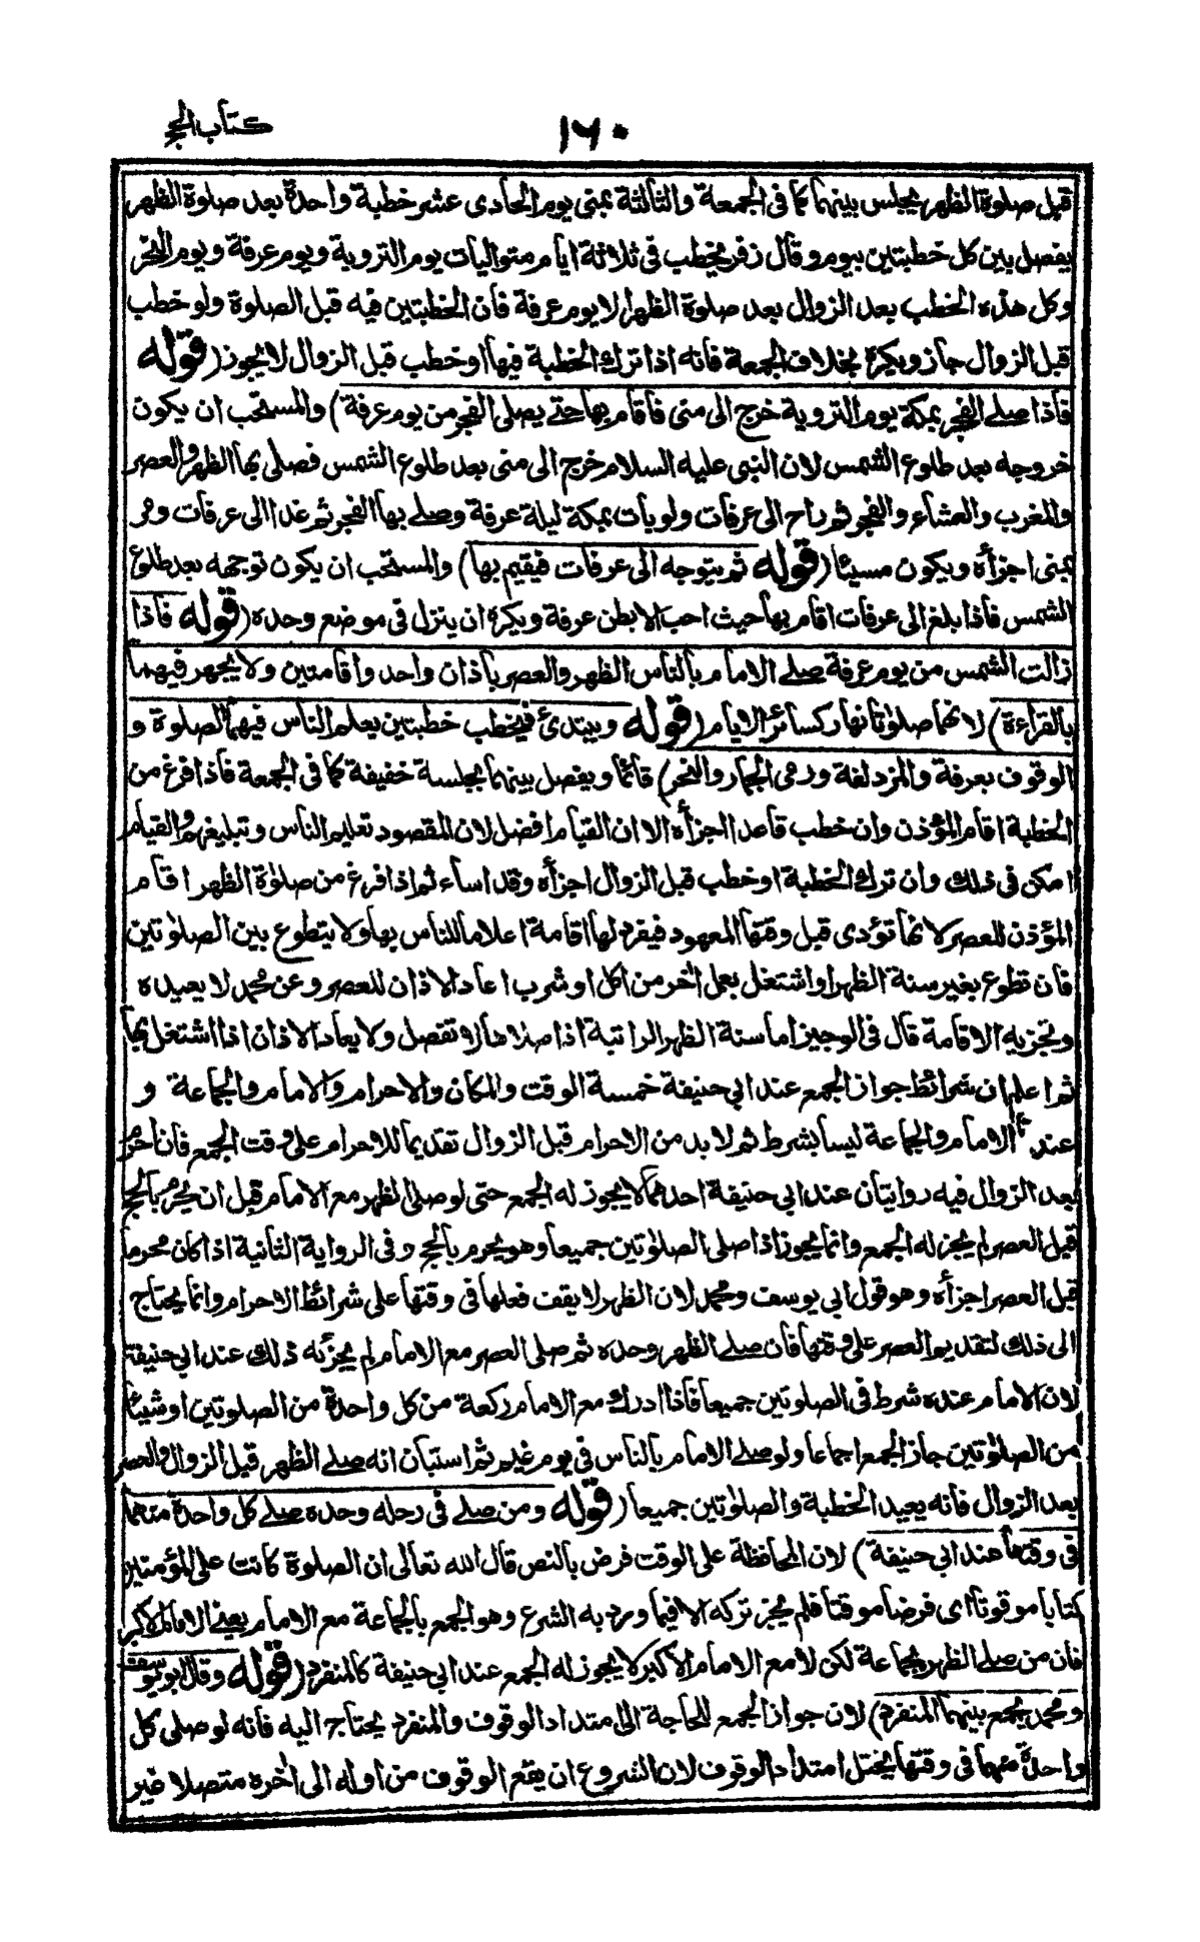 ١٦٠
كتاب الحج
قبل صلوة الظهر يجلس بينهما كما في الجمعة والثالثة بمنى يوم الحادى عشر خطبة واحدة بعد صلوة الظهر
يفصل بين كل خطبتين بيوم وقال زفر يخطب في ثلاثة ايام متواليات يوم التروية ويوم عرفة ويوم النحر
وكل هذه الخطب بعد الزوال بعد صلوة الظهر الا يوم عرفة فان الخطبتين فيه قبل الصلوة ولو خطب
قبل الزوال جاز ويكره بخلاف الجمعة فانه اذا ترك الخطبة فيها او خطب قبل الزوال لا يجوز (قوله
فاذا صلے الفجر بمكة يوم التروية خرج الى منى فاقام بها حتے يصلى الفجر من يوم عرفة) والمستحب ان يكون
خروجه بعد طلوع الشمس لان النبى عليه السلام خرج الى منى بعد طلوع الشمس فصلى بها الظهر والعصر
والمغرب والعشاء والفجر ثم راح الى عرفات ولو بات بمكة ليلة عرفة وصلے بها الفجر ثم غدا الى عرفات ومر
بمنى اجزأه ويكون مسيئا (قوله ثم يتوجه الى عرفات فيقيم بها) والمستحب ان يكون توجهه بعد طلوع
الشمس فاذا بلغ الى عرفات اقام بها حيث احب الا بطن عرفة ويكره ان ينزل فى موضع وحده (قوله فاذا
زالت الشمس من يوم عرفة صلے الامام بالناس الظهر والعصر باذان واحد واقامتين ولا يجهر فيهما
بالقراءة) لانهما صلوٰتا نهار كسائر الايام (قوله ويبتدئ فيخطب خطبتين يعلم الناس فيهما الصلوة و
الوقوف بعرفة والمزدلفة ورمى الجمار والنحر) قائما ويفصل بينهما بجلسة خفيفة كما فى الجمعة فاذا فرغ من
الخطبة اقام المؤذن وان خطب قاعدا اجزأه الا ان القيام افضل لان المقصود تعليم الناس وتبليغهم والقيام
امكن فى ذلك وان ترك الخطبة او خطب قبل الزوال اجزأه وقد اساء ثم اذا فرغ من صلوٰة الظهر اقام
المؤذن للعصر لانها تؤدى قبل وقتها المعهود فيفرد لها اقامة اعلاما للناس بها ولا يتطوع بين الصلوٰتين
فان تطوع بغير سنة الظهر او اشتغل بعمل اٰخر من اكل او شرب اعاد الاذان للعصر وعن محمد لا يعيده
وتجزيه الاقامة قال فى الوجيز اما سنة الظهر الراتبة اذا صلاها لا تفصل ولا يعاد الاذان اذا اشتغل بها
ثم اعلم ان شرائط جواز الجمع عند ابى حنيفة خمسة الوقت والمكان والاحرام والامام والجماعة و
عندهما الامام والجماعة ليسا بشرط ثم لا بد من الاحرام قبل الزوال تقديما للاحرام على وقت الجمع فان احرم
بعد الزوال فيه روايتان عند ابى حنيفة احدهما لا يجوز له الجمع حتى لو صلى الظهر مع الامام قبل ان يحرم بالحج
قبل العصر لم يجز له الجمع وانما يجوز اذا صلى الصلوٰتين جميعا وهو يحرم بالحج وفى الرواية الثانية اذا كان محرما
قبل العصر اجزأه وهو قول ابى يوسف ومحمد لان الظهر لا يقف فعلها فى وقتها على شرائط الاحرام وانما يحتاج
الى ذلك لتقديم العصر على وقتها فان صلے الظهر وحده ثم صلى العصر مع الامام لم يجزئه ذلك عند ابى حنيفة
لان الامام عنده شرط فى الصلوتين جميعا فاذا ادرك مع الامام ركعة من كل واحدة من الصلوتين او شيئا
من الصلوٰتين جاز الجمع اجماعا ولو صلے الامام بالناس فى يوم غيم ثم استبان انه صلے الظهر قبل الزوال والعصر
بعد الزوال فانه يعيد الخطبة والصلوٰتين جميعا (قوله ومن صلے فى رحله وحده صلے كل واحدة منهما
فى وقتها عند ابى حنيفة) لان المحافظة على الوقت فرض بالنص قال الله تعالى ان الصلوة كانت على المؤمنين
كتابا موقوتا اى فرضا موقتا فلم يجز تركه الا فيما ورد به الشرع وهو الجمع بالجماعة مع الامام يعنے الامام الاكبر
فان من صلے الظهر بجماعة لكن لا مع الامام الاكبر لا يجوز له الجمع عند ابى حنيفة كالمنفرد (قوله وقال ابو يوسف
ومحمد يجمع بينهما المنفرد) لان جواز الجمع للحاجة الى امتداد الوقوف والمنفرد يحتاج اليه فانه لو صلى كل
واحدة منهما فى وقتها يختل امتداد الوقوف لان الشروع ان يقع الوقوف من اوله الى اٰخره متصلا غير